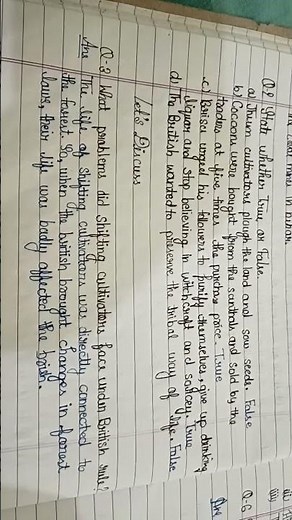 Q-2 State whether True or False.
a) Jhum cultivators plough the land and sow seeds. False
b) Cocoons were bought from the santhals and sold by the
traders at five times the purchase price. True
c) Birsa urged his followers to purify themselves, give up drinking
liquor and stop believing in witchcraft and sorcery. True
d) The British wanted to preserve the tribal way of life. False
Let's Discuss
Q-3 What problems did shifting cultivators face under British rule?
Ans The life of shifting cultivators was directly connected to
the forest. So, when the british brought changes in forest
laws, their life was badly affected the
Q-6
Ans